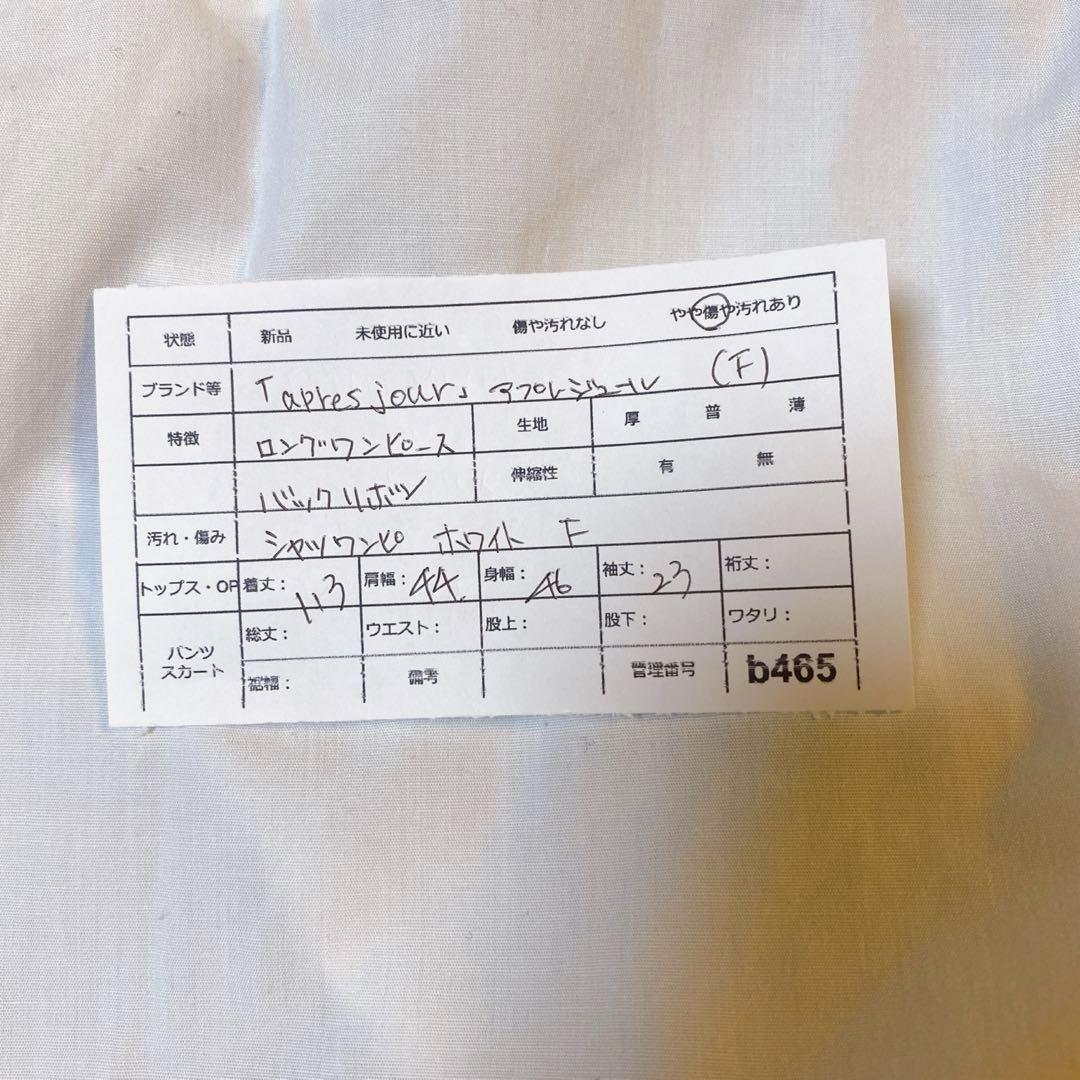 状態 新品 未使用に近い 傷や汚れなし やや傷や汚れあり
ブランド等 「apres jour」 アプレジュール (F)
特徴 ロングワンピース 生地 厚 普 薄
バックリボン 伸縮性 有 無
汚れ・傷み シャツワンピ ホワイト F
トップス・OP 着丈: 113 肩幅: 44. 身幅: 46 袖丈: 23 裄丈:
パンツ スカート 総丈: ウエスト: 股上: 股下: ワタリ:
裾幅: 備考 管理番号 b465